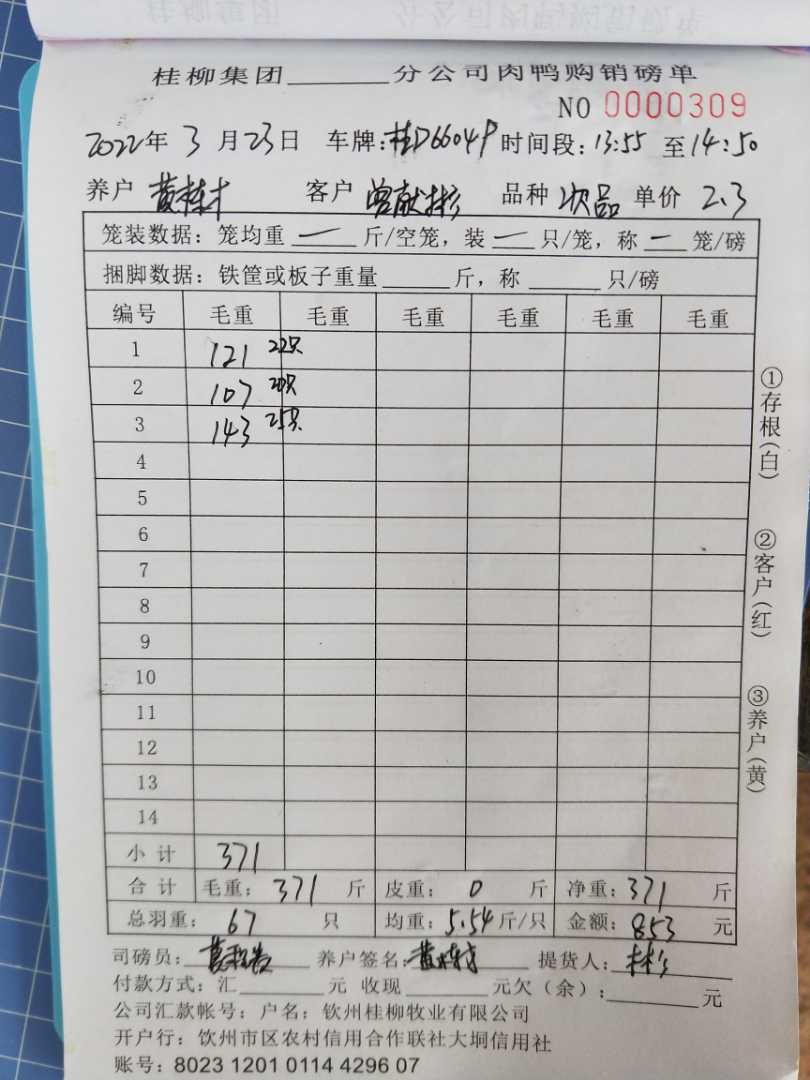 桂柳集团______分公司肉鸭购销磅单
NO 0000309
2022年 3月23日 车牌:桂D6604P 时间段:13:55 至14:50
养户 黄栋才 客户 曾献彬 品种 次品 单价 2.3
笼装数据：笼均重 一 斤/空笼，装 一 只/笼，称 一 笼/磅
捆脚数据：铁筐或板子重量______斤，称______只/磅
编号 毛重 毛重 毛重 毛重 毛重 毛重
1 121 22只
2 107 20只
3 143 25只
4
5
6
7
8
9
10
11
12
13
14
小 计 371
合 计 毛重：371 斤 皮重：0 斤 净重：371 斤
总羽重：67 只 均重：5.54 斤/只 金额：853 元
司磅员： 养户签名：黄栋才 提货人：彬
付款方式：汇______元 收现______元欠（余）：______元
公司汇款帐号：户名：钦州桂柳牧业有限公司
开户行：钦州市区农村信用合作联社大垌信用社
账号：8023 1201 0114 4296 07
①存根(白)
②客户(红)
③养户(黄)